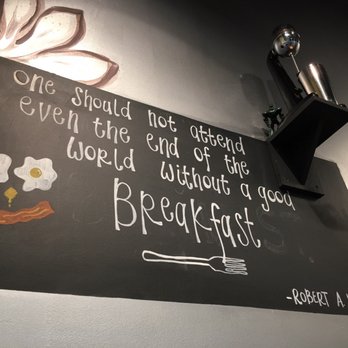 one should not attend
even the end of the
world without a good
Breakfast
-ROBERT A.